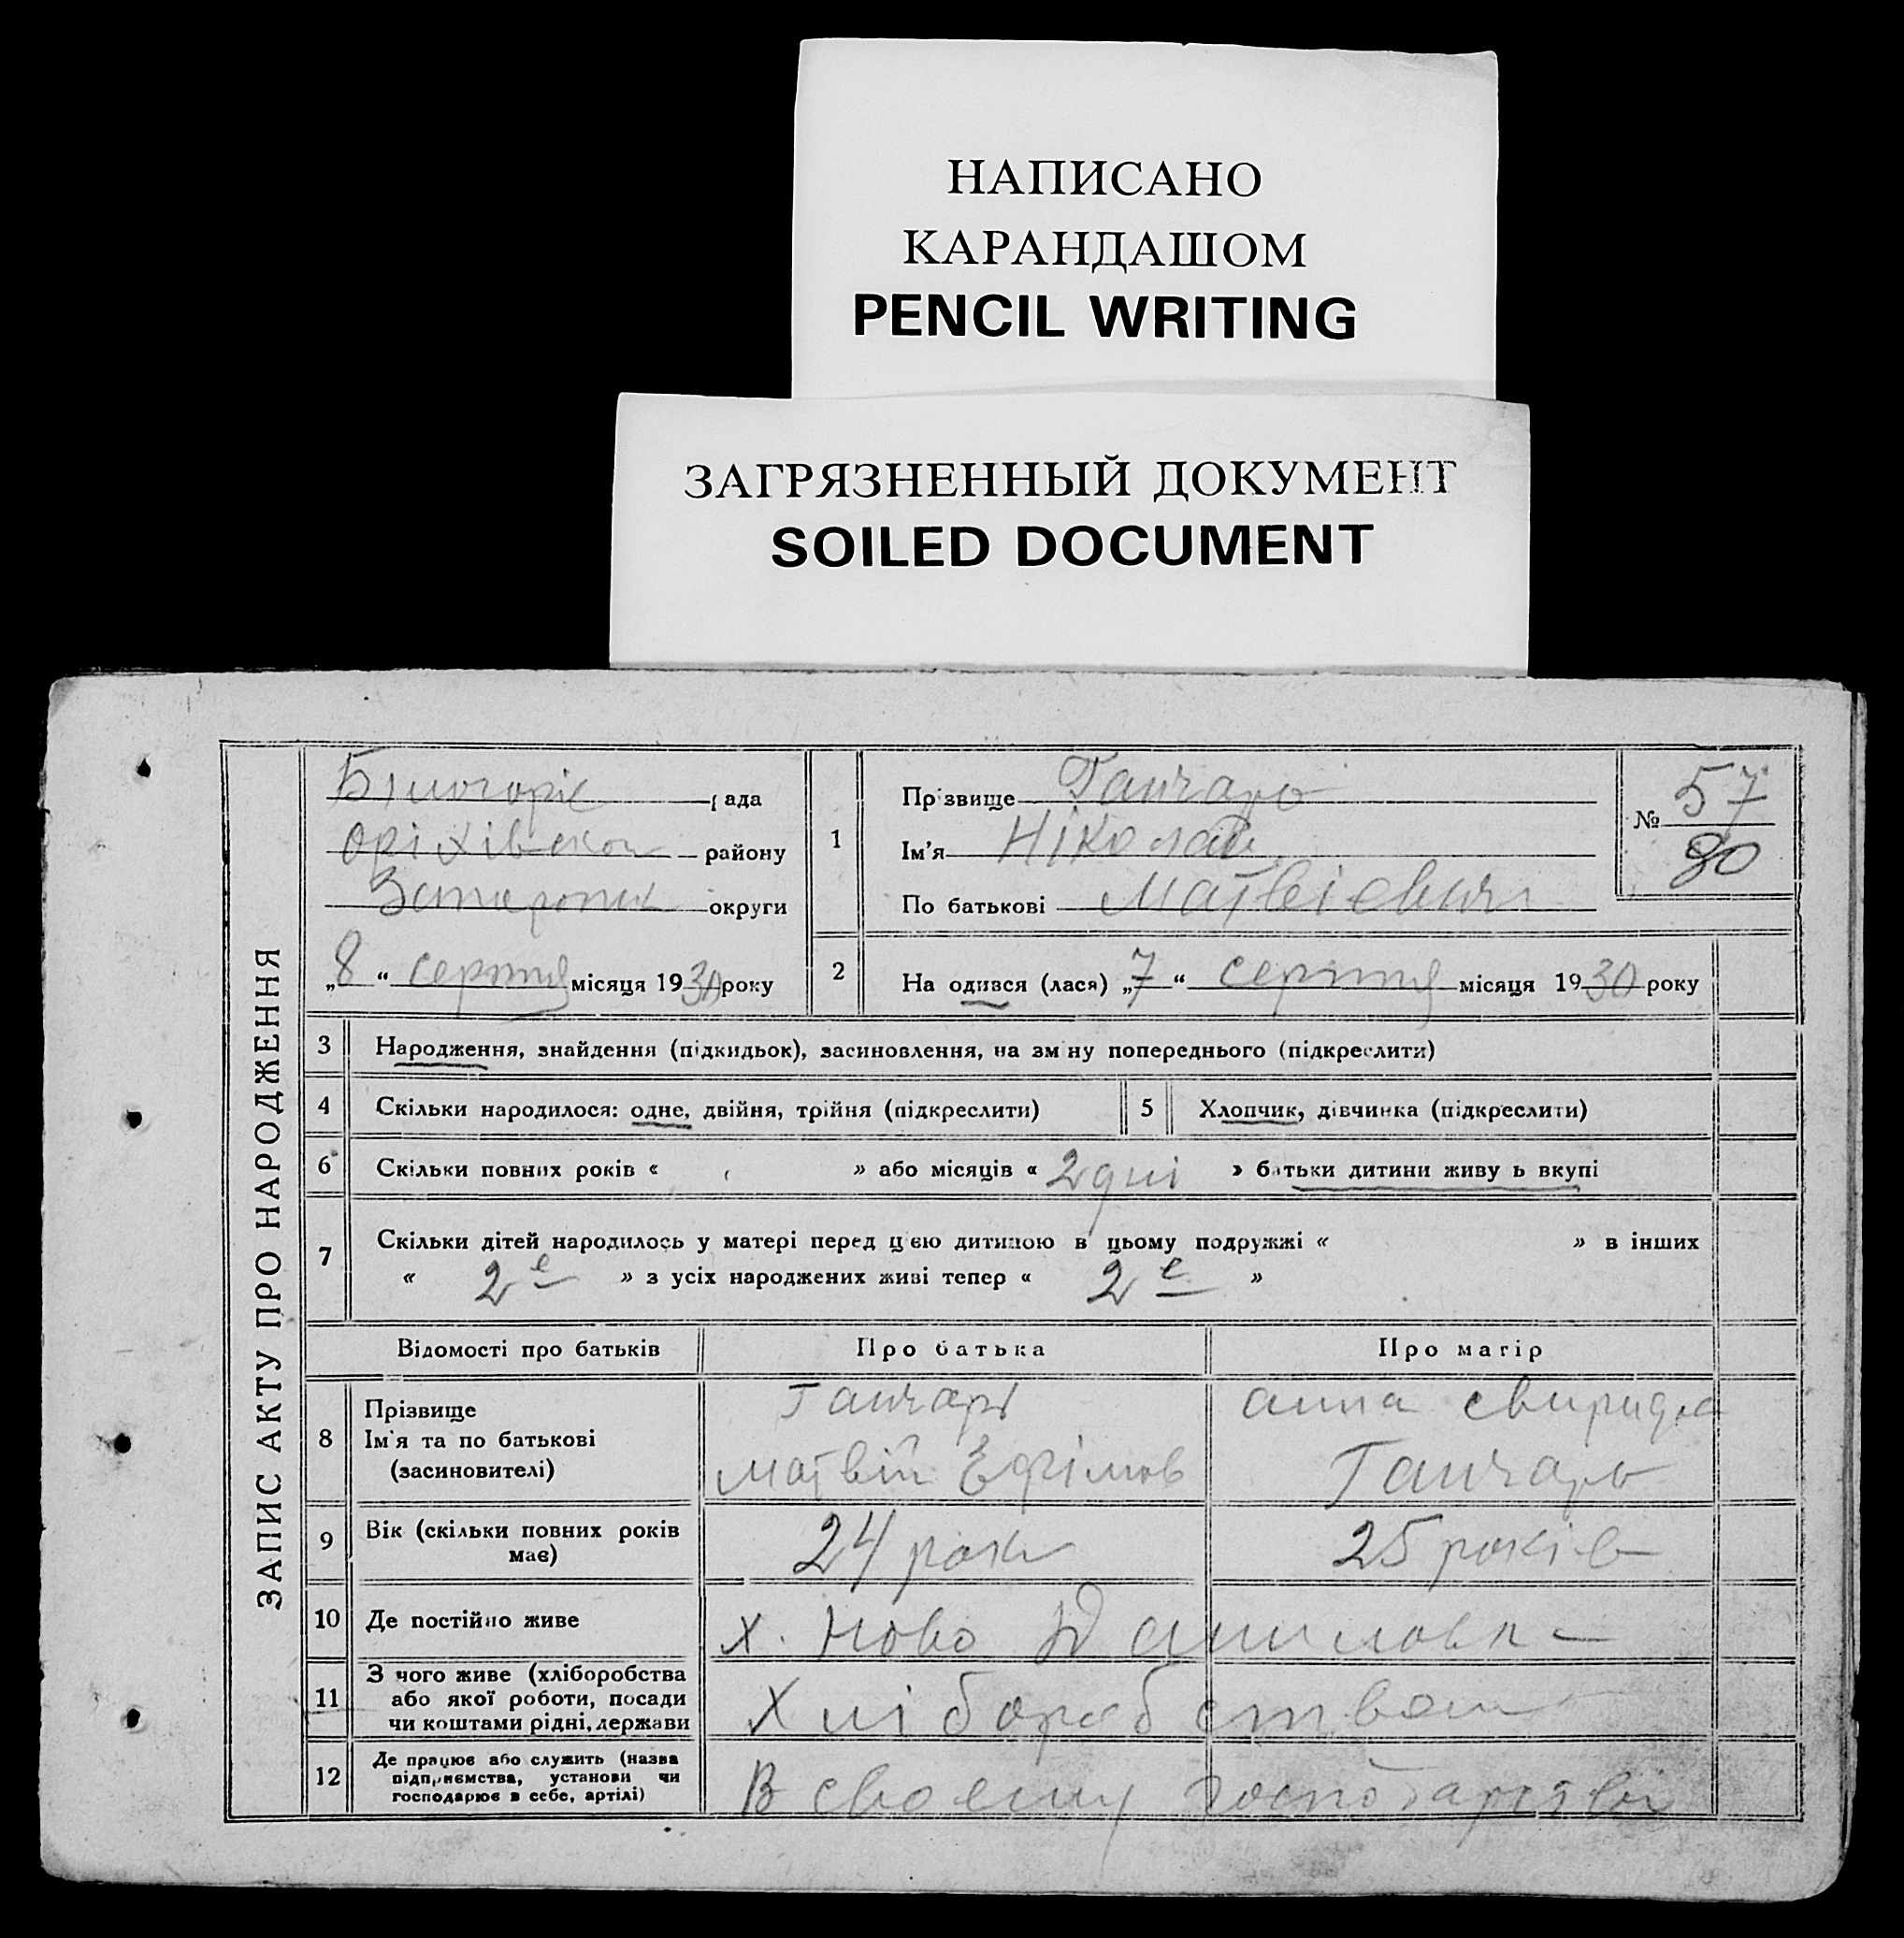 НАПИСАНО
КАРАНДАШОМ
PENCIL WRITING
ЗАГРЯЗНЕННЫЙ ДОКУМЕНТ
SOILED DOCUMENT
ЗАПИС АКТУ ПРО НАРОДЖЕННЯ
Білогоріс рада
Оріхівської району
округи
„8“ серпня місяця 1930 року
1
Прізвище Ганчарь
Ім'я Ніколай
По батькові Матвієвич
№ 57
90
2 На одився (лася) „7“ серпня місяця 1930 року
3 Народження, знайдення (підкидьок), засиновлення, на зміну попереднього (підкреслити)
4 Скільки народилося: одне, двійня, трійня (підкреслити)
5 Хлопчик, дівчинка (підкреслити)
6 Скільки повних років « » або місяців « 2 дні » батьки дитини живу ь вкупі
7 Скільки дітей народилось у матері перед цією дитиною в цьому подружжі « » в інших
« 2е » з усіх народжених живі тепер « 2е »
Відомості про батьків Про батька Про матір
8 Прізвище
Ім'я та по батькові
(засиновителі)
Ганчарь
Матвій Ефімов
Анна Свирид
Ганчарь
9 Вік (скільки повних років
має)
24 роки 25 років
10 Де постійно живе х. Ново Даниловка
11 З чого живе (хліборобства
або якої роботи, посади
чи коштами рідні, держави
Хліборобством
12 Де працює або служить (назва
підприємства, установи чи
господарює в себе, артілі)
В своєму господарстві